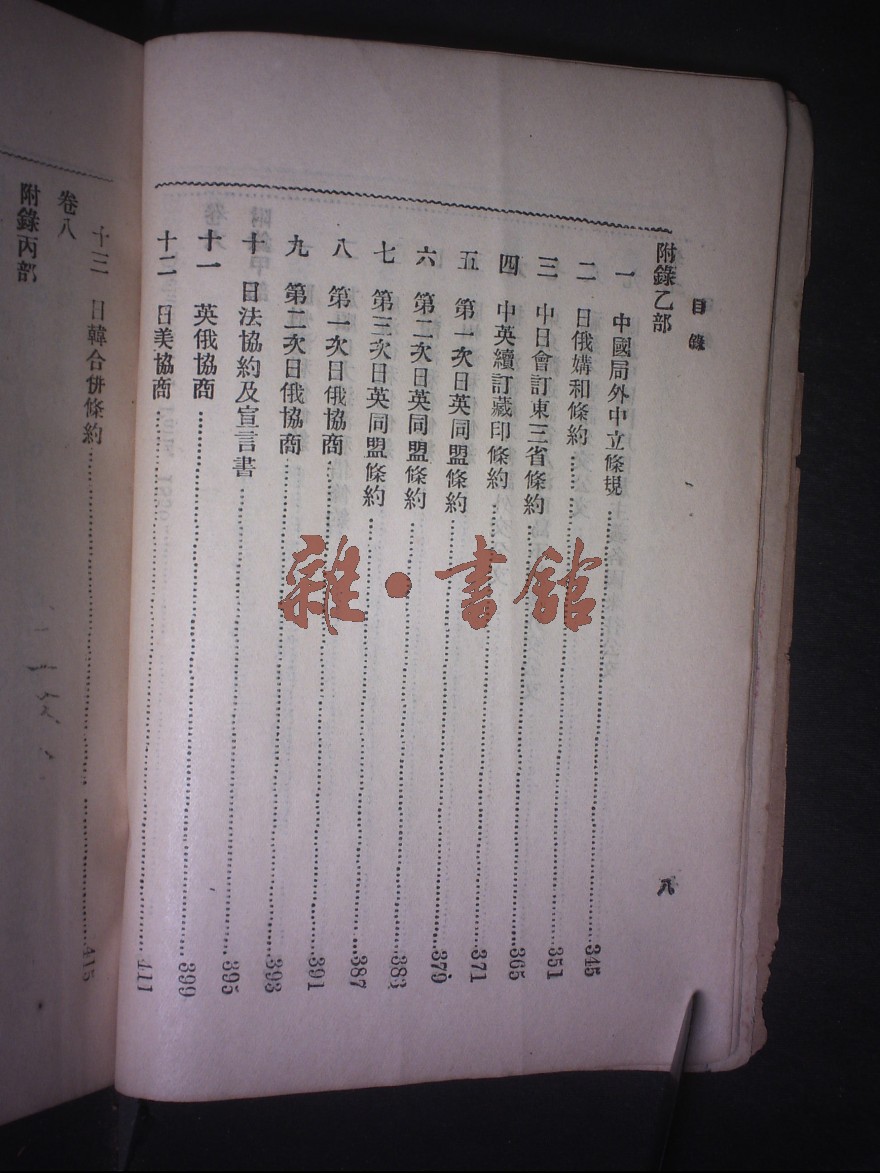 目錄
八
附錄乙部
一 中國局外中立條規 345
二 日俄媾和條約 351
三 中日會訂東三省條約 365
四 中英續訂藏印條約 371
五 第一次日英同盟條約 379
六 第二次日英同盟條約 383
七 第三次日英同盟條約 387
八 第一次日俄協商 391
九 第二次日俄協商 393
十 日法協約及宣言書 395
十一 英俄協商 399
十二 日美協商 411
十三 日韓合併條約 415
卷八
附錄丙部
雜·書館